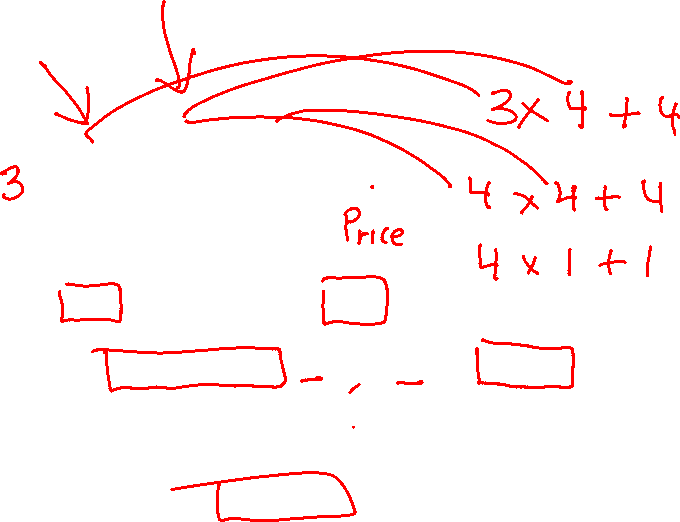 3x4+4
3
4x4+4
Price
4x1+1